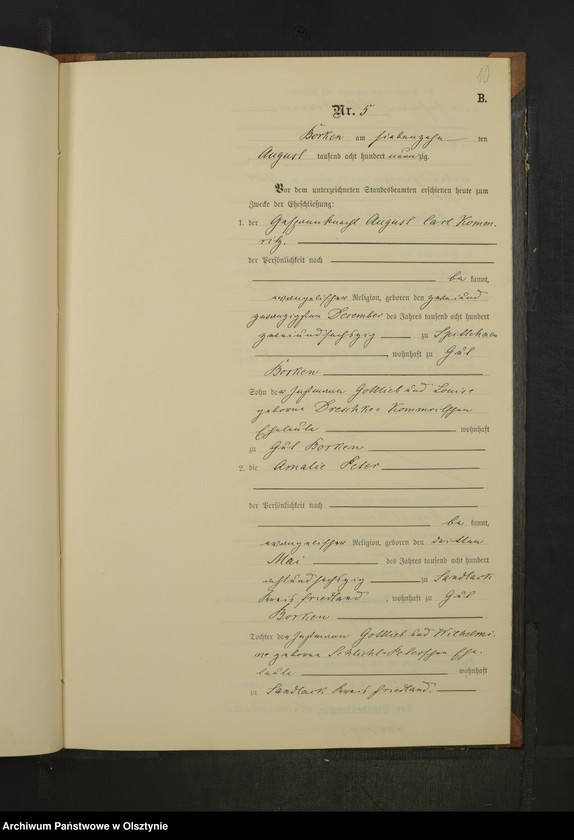 10
B.
Nr. 5
Borken am siebenzehn ten
August tausend acht hundert neunzig.
Vor dem unterzeichneten Standesbeamten erschienen heute zum
Zwecke der Eheschließung:
1. der Gespannknecht August Carl Komm-
ritz.
der Persönlichkeit nach
be kannt,
evangelischer Religion, geboren den zweiund
zwanzigsten Dezember des Jahres tausend acht hundert
zweiundsechszig zu Spittehnen
, wohnhaft zu Gut
Borken
Sohn der Instmann Gottlieb und Louise
geborne Kommritzschen
Eheleute wohnhaft
zu Gut Borken
2. die Amalie Peter
der Persönlichkeit nach
be kannt,
evangelischer Religion, geboren den dritten
Mai des Jahres tausend acht hundert
achtundsechszig zu Sandlack
Kreis Friedland, wohnhaft zu Gut
Borken
Tochter der Instmann Gottlieb und Wilhelmi-
ne geborne Schlicht-Peterschen Ehe-
leute wohnhaft
zu Sandlack Kreis Friedland.
Archiwum Państwowe w Olsztynie